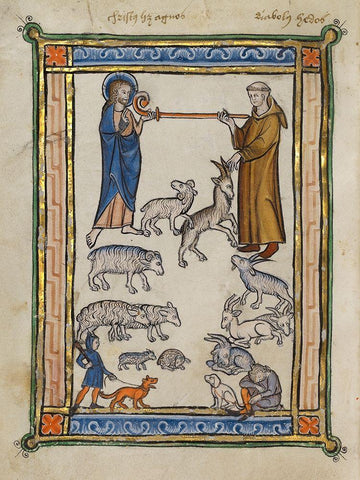 christus hz agnos
diabolus hedos